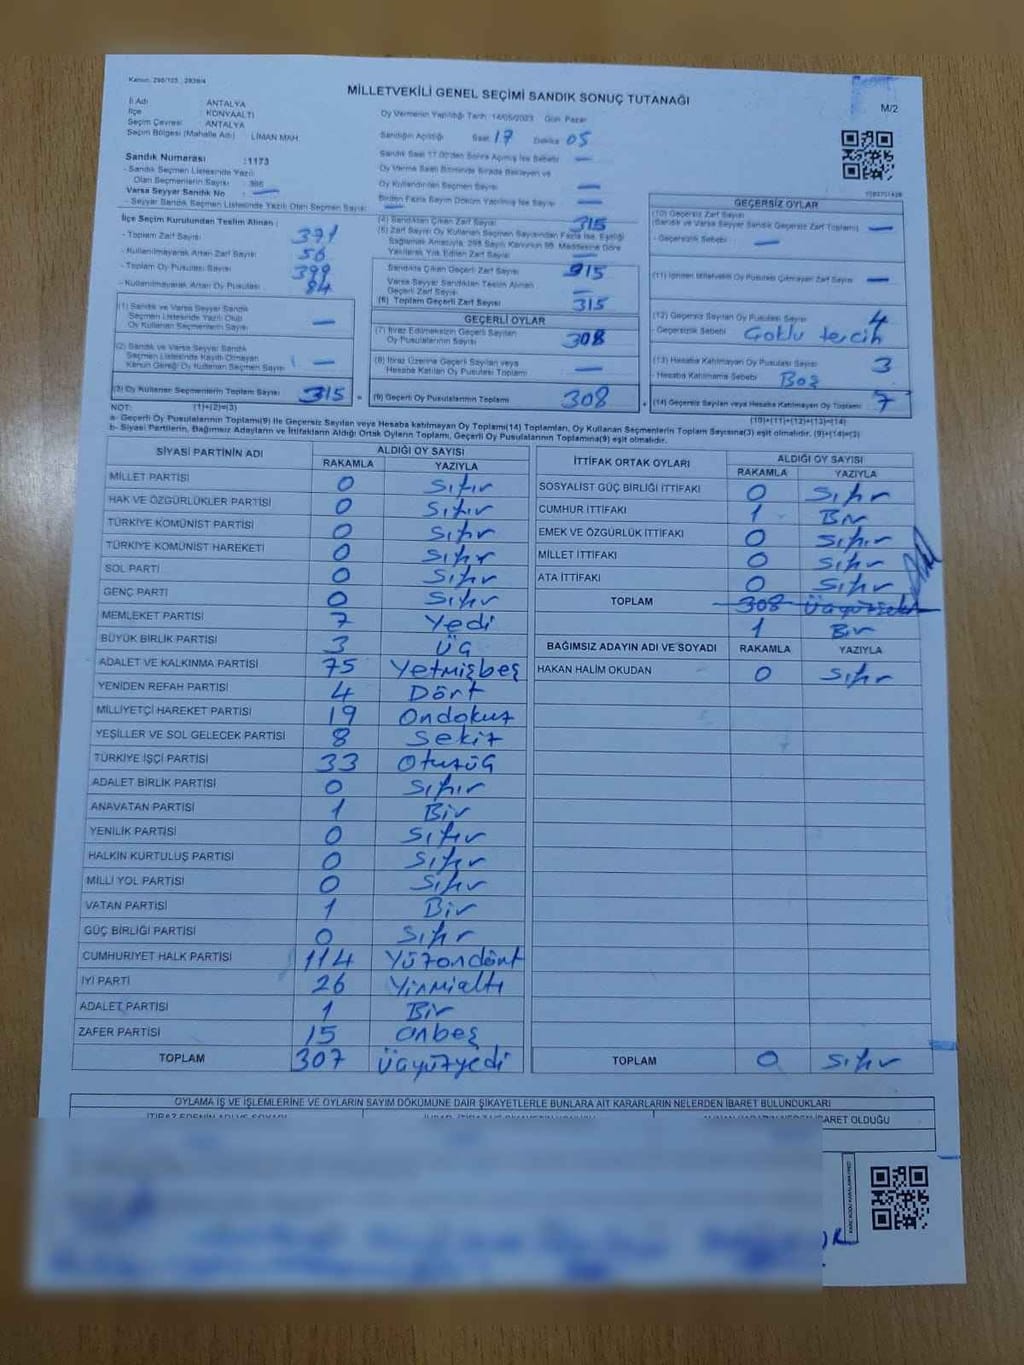 Kanun: 298/105 , 2839/4
MİLLETVEKİLİ GENEL SEÇİMİ SANDIK SONUÇ TUTANAĞI
M/2
İl Adı ANTALYA
İlçe KONYAALTI
Seçim Çevresi ANTALYA
Seçim Bölgesi (Mahalle Adı) LİMAN MAH
Oy Vermenin Yapıldığı Tarih: 14/05/2023 Gün: Pazar
Sandığın Açıldığı Saat: 17 Dakika 05
Sandık Saat 17.00'den Sonra Açılmış İse Sebebi —
Oy Verme Saati Bitiminde Sırada Bekleyen ve
Oy Kullandırılan Seçmen Sayısı —
Birden Fazla Sayım Döküm Yapılmış İse Sayısı —
Sandık Numarası :1173
- Sandık Seçmen Listesinde Yazılı
Olan Seçmenlerin Sayısı
Varsa Seyyar Sandık No —
- Seyyar Sandık Seçmen Listesinde Yazılı Olan Seçmen Sayısı: —
İlçe Seçim Kurulundan Teslim Alınan :
- Toplam Zarf Sayısı 371
- Kullanılmayarak Artan Zarf Sayısı 56
- Toplam Oy Pusulası Sayısı 399
- Kullanılmayarak Artan Oy Pusulası 84
(1) Sandık ve Varsa Seyyar Sandık
Seçmen Listesinde Yazılı Olup
Oy Kullanan Seçmenlerin Sayısı —
(2) Sandık ve Varsa Seyyar Sandık
Seçmen Listesinde Kayıtlı Olmayan
Kanun Gereği Oy Kullanan Seçmen Sayısı —
(3) Oy Kullanan Seçmenlerin Toplam Sayısı 315
(4) Sandıktan Çıkan Zarf Sayısı 315
(5) Zarf Sayısı Oy Kullanan Seçmen Sayısından Fazla İse, Eşitliği
Sağlamak Amacıyla, 298 Sayılı Kanunun 98. Maddesine Göre
Yakılarak Yok Edilen Zarf Sayısı —
Sandıkta Çıkan Geçerli Zarf Sayısı 315
Varsa Seyyar Sandıktan Teslim Alınan
Geçerli Zarf Sayısı —
(6) Toplam Geçerli Zarf Sayısı 315
GEÇERLİ OYLAR
(7) İtiraz Edilmeksizin Geçerli Sayılan
Oy Pusulalarının Sayısı 308
(8) İtiraz Üzerine Geçerli Sayılan veya
Hesaba Katılan Oy Pusulası Toplamı —
(9) Geçerli Oy Pusulalarının Toplamı 308
GEÇERSİZ OYLAR
(10) Geçersiz Zarf Sayısı
(Sandık ve Varsa Seyyar Sandık Geçersiz Zarf Toplamı) —
- Geçersizlik Sebebi —
(11) İçinden Milletvekili Oy Pusulası Çıkmayan Zarf Sayısı —
(12) Geçersiz Sayılan Oy Pusulası Sayısı 4
- Geçersizlik Sebebi Çoklu tercih
(13) Hesaba Katılmayan Oy Pusulası Sayısı 3
- Hesaba Katılmama Sebebi Boş
(14) Geçersiz Sayılan veya Hesaba Katılmayan Oy Toplamı 7
NOT: (1)+(2)=(3) (10)+(11)+(12)+(13)=(14)
a- Geçerli Oy Pusulalarının Toplamı(9) ile Geçersiz Sayılan veya Hesaba Katılmayan Oy Toplamı(14) Toplamları, Oy Kullanan Seçmenlerin Toplam Sayısına(3) eşit olmalıdır. (9)+(14)=(3)
b- Siyasi Partilerin, Bağımsız Adayların ve İttifakların Aldığı Ortak Oyların Toplamı, Geçerli Oy Pusulalarının Toplamına(9) eşit olmalıdır.
SİYASİ PARTİNİN ADI ALDIĞI OY SAYISI
RAKAMLA YAZIYLA
MİLLET PARTİSİ 0 Sıfır
HAK VE ÖZGÜRLÜKLER PARTİSİ 0 Sıfır
TÜRKİYE KOMÜNİST PARTİSİ 0 Sıfır
TÜRKİYE KOMÜNİST HAREKETİ 0 Sıfır
SOL PARTİ 0 Sıfır
GENÇ PARTİ 0 Sıfır
MEMLEKET PARTİSİ 7 Yedi
BÜYÜK BİRLİK PARTİSİ 3 Üç
ADALET VE KALKINMA PARTİSİ 75 Yetmişbeş
YENİDEN REFAH PARTİSİ 4 Dört
MİLLİYETÇİ HAREKET PARTİSİ 19 Ondokuz
YEŞİLLER VE SOL GELECEK PARTİSİ 8 Sekiz
TÜRKİYE İŞÇİ PARTİSİ 33 Otuzüç
ADALET BİRLİK PARTİSİ 0 Sıfır
ANAVATAN PARTİSİ 1 Bir
YENİLİK PARTİSİ 0 Sıfır
HALKIN KURTULUŞ PARTİSİ 0 Sıfır
MİLLİ YOL PARTİSİ 0 Sıfır
VATAN PARTİSİ 1 Bir
GÜÇ BİRLİĞİ PARTİSİ 0 Sıfır
CUMHURİYET HALK PARTİSİ 114 Yüzondört
İYİ PARTİ 26 Yirmialtı
ADALET PARTİSİ 1 Bir
ZAFER PARTİSİ 15 Onbeş
TOPLAM 307 Üçyüzyedi
İTTİFAK ORTAK OYLARI ALDIĞI OY SAYISI
RAKAMLA YAZIYLA
SOSYALİST GÜÇ BİRLİĞİ İTTİFAKI 0 Sıfır
CUMHUR İTTİFAKI 1 Bir
EMEK VE ÖZGÜRLÜK İTTİFAKI 0 Sıfır
MİLLET İTTİFAKI 0 Sıfır
ATA İTTİFAKI 0 Sıfır
TOPLAM 308 Üçyüzsekiz
1 Bir
BAĞIMSIZ ADAYIN ADI VE SOYADI RAKAMLA YAZIYLA
HAKAN HALİM OKUDAN 0 Sıfır
TOPLAM 0 Sıfır
OYLAMA İŞ VE İŞLEMLERİNE VE OYLARIN SAYIM DÖKÜMÜNE DAİR ŞİKAYETLERLE BUNLARA AİT KARARLARIN NELERDEN İBARET BULUNDUKLARI
İTİRAZ EDENİN ADI VE SOYADI